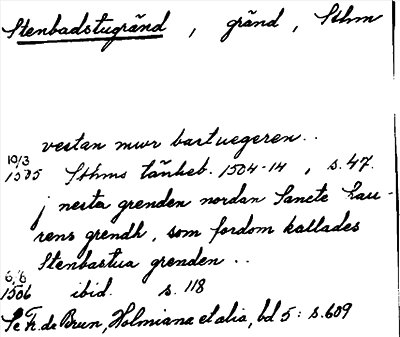 Stenbadstugränd , gränd , Sthm
vestan mwr bastuegeren . .
10/3
1505 Sthms tänkeb. 1504-14 , s. 47.
j nesta grenden nordan Sancte Lau-
rens grendh, som fordom kallades
Stenbastua grenden . .
6/6
1506 ibid. s. 118
Se Fr. de Brun, Holmiana et alia, bd 5: s. 609